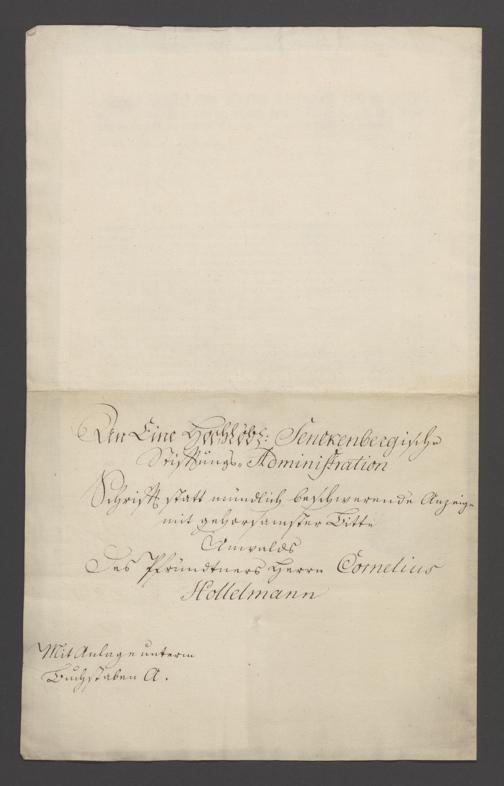 An Eine Hochlöbl: Senckenbergische
Stiftungs-Administration
Schrift statt mündlich beschwerende Anzeige
mit gehorsamster Bitte
Anwalds
Des Pfründtners Herrn Cornelius
Hottelmann
Mit Anlage unterm
Buchstaben A.